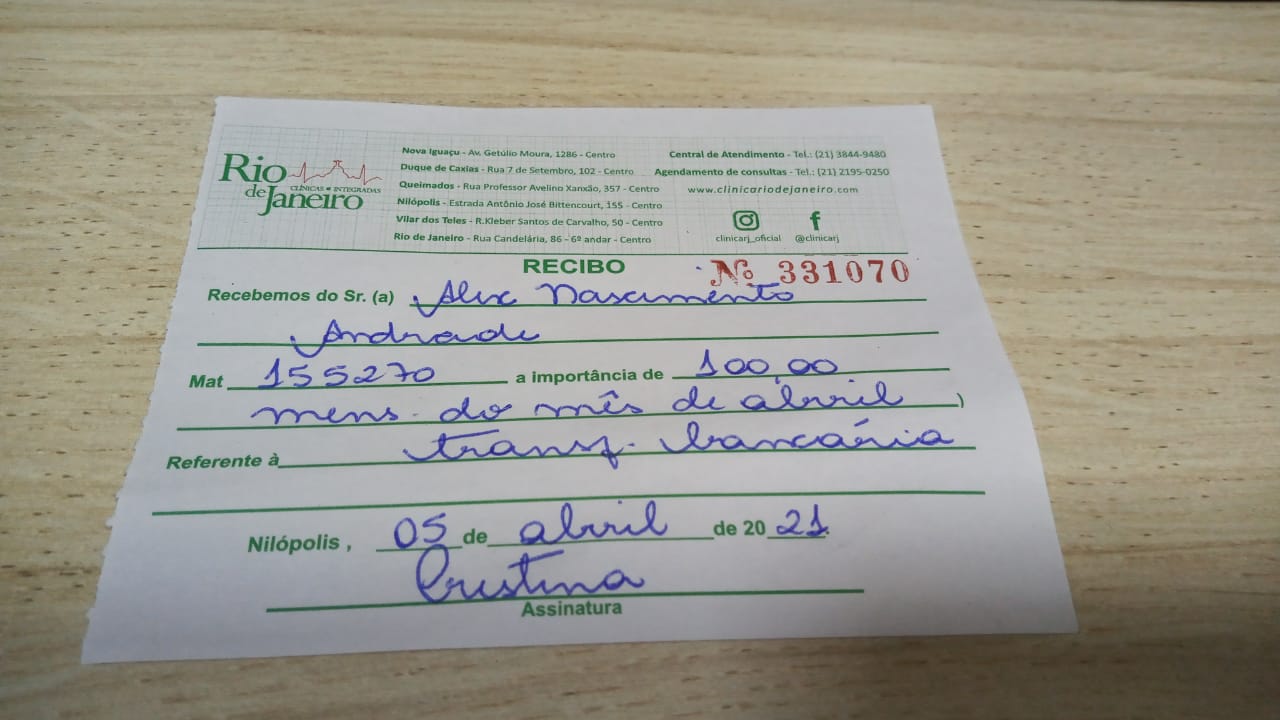 Rio
de Janeiro
CLÍNICAS INTEGRADAS
Nova Iguaçu - Av. Getúlio Moura, 1286 - Centro
Duque de Caxias - Rua 7 de Setembro, 102 - Centro
Queimados - Rua Professor Avelino Xanxão, 357 - Centro
Nilópolis - Estrada Antônio José Bittencourt, 155 - Centro
Vilar dos Teles - R.Kleber Santos de Carvalho, 50 - Centro
Rio de Janeiro - Rua Candelária, 86 - 6º andar - Centro
Central de Atendimento - Tel.: (21) 3844-9480
Agendamento de consultas - Tel.: (21) 2195-0250
www.clinicariodejaneiro.com
clinicarj_oficial @clinicarj
RECIBO Nº 331070
Recebemos do Sr. (a) Alex Nascimento
Andrade
Mat 155270 a importância de 100,00
mens. do mês de abril )
Referente à transf. bancária
Nilópolis , 05 de abril de 20 21
Cristina
Assinatura